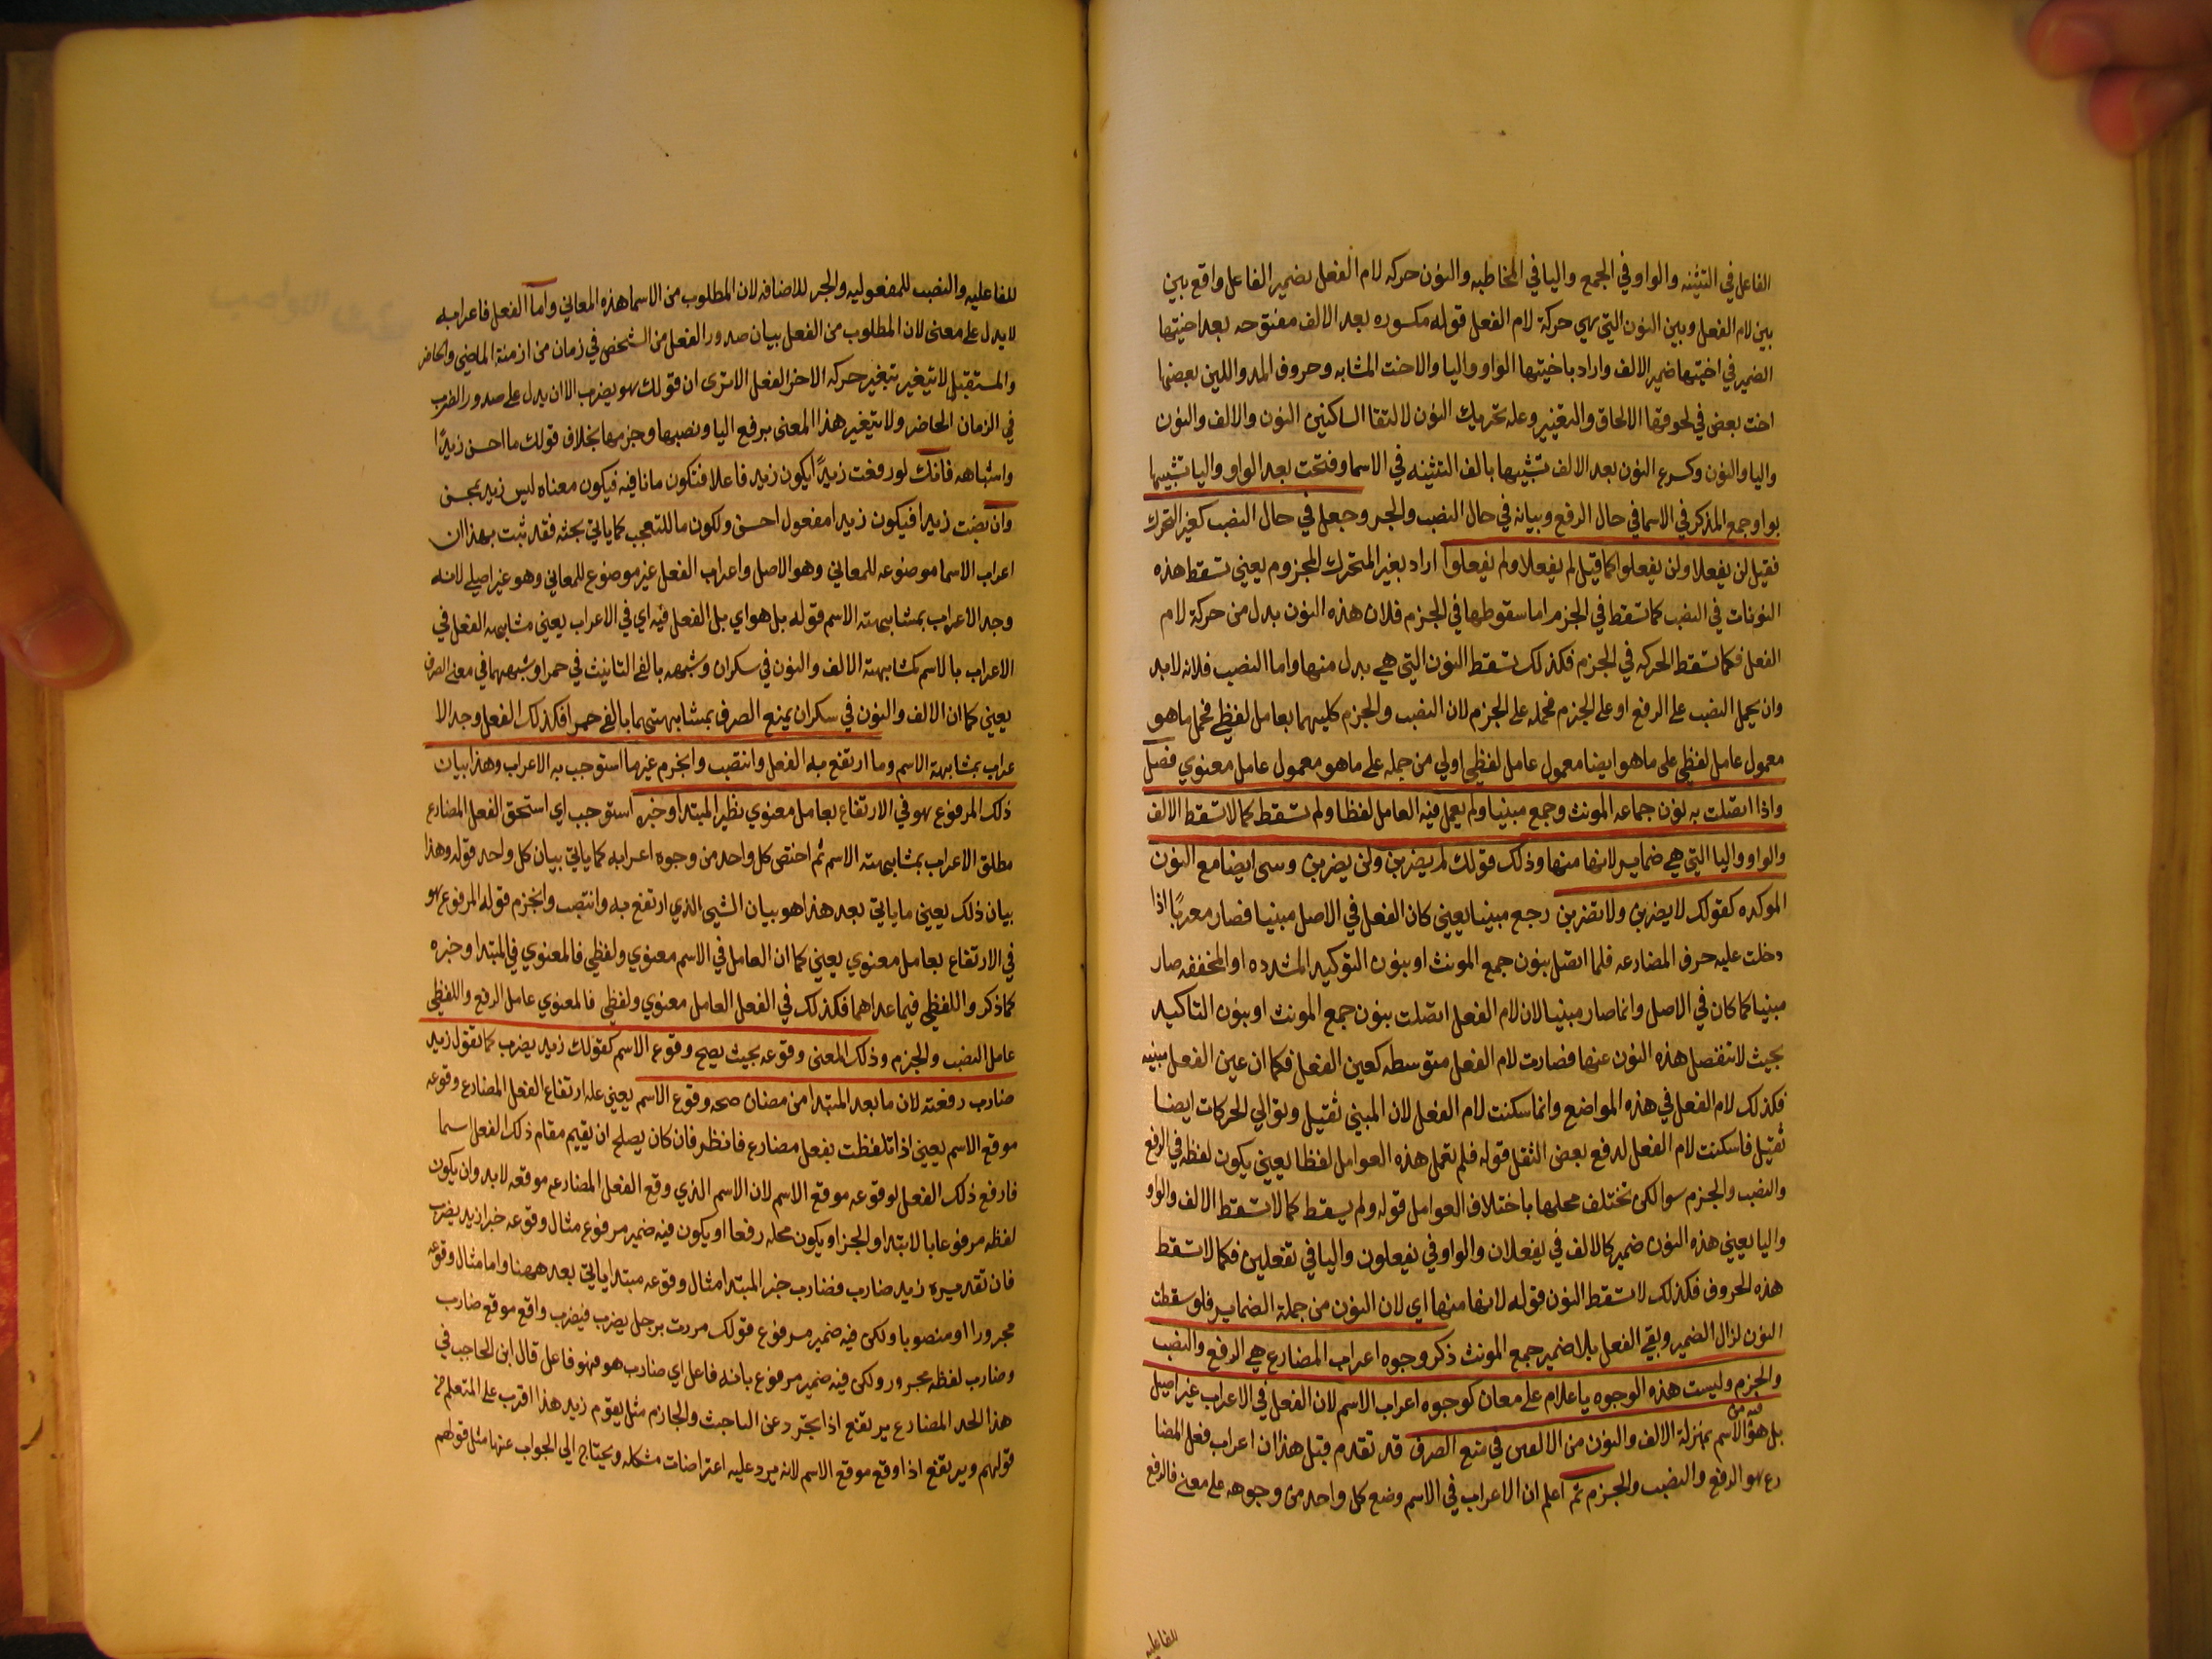 الفاعل في التثنيه والواو في الجمع واليا في المخاطبه والنون حركه لام الفعل بضمير الفاعل واقع بين
بين لام الفعل وبين النون التي هي حركة لام الفعل قوله مكسوره بعد الالف مفتوحه بعد اختيها
الضمير في اختيها ضمير الالف واراد باختيها الواو واليا والاخت المشابه وحروف المد واللين بعضها
اخت بعض في لحوقها الالحاق والتغيير وعله تحريك النون لالتقا الساكنين النون والالف والنون
واليا والنون وكسرع النون بعد الالف تشبيها بالف التثنيه في الاسما وفتحت بعد الواو واليا تشبيها
بواو جمع المذكر في الاسما في حال الرفع وبيانه في حال النصب والجر وجعل في حال النصب كغير المتحرك
فقيل لن يفعلا ولن يفعلوا كما قيل لم يفعلا ولم يفعلوا اراد بغير المتحرك المجزوم يعني تسقط هذه
النونات في النصب كما تسقط في الجزم اما سقوطها في الجزم فلان هذه النون بدل من حركة لام
الفعل فكما تسقط الحركه في الجزم فكذلك تسقط النون التي هي بدل منها واما النصب فلانه لابد
وان يحمل النصب على الرفع او على الجزم فحمله على الجزم لان النصب والجزم كليهما بعامل لفظي فحمل ما هو
معمول عامل لفظي على ما هو ايضا معمول عامل لفظي اولي من حمله على ما هو معمول عامل معنوي فصل
واذا اتصلت به نون جماعه المونث وجمع مبنيا ولم يعمل فيه العامل لفظا ولم تسقط كما لا تسقط الالف
والواو واليا التي هي ضماير لانها منها وذلك قولك لم يضربن ولن يضربن وسى ايضا مع النون
الموكده كقولك لا يضربن ولا تضربن رجع مبنيا يعني كان الفعل في الاصل مبنيا فصار معربًا اذا
دخلت عليه حرف المضارعه فلما اتصل بنون جمع المونث او بنون التوكيد المشدده او المخففه صار
مبنيا كما كان في الاصل وانما صار مبنيا لان لام الفعل اتصلت بنون جمع المونث او بنون التاكيد
بحيث لا تنفصل هذه النون عنها فصارت لام الفعل متوسطه كعين الفعل فكما ان عين الفعل مبنيه
فكذلك لام الفعل في هذه المواضع وانما سكنت لام الفعل لان المبني ثقيل وتوالي الحركات ايضا
ثقيل فاسكنت لام الفعل لدفع بعض الثقل قوله فلم تعمل هذه العوامل لفظا يعني يكون لفظه في الرفع
والنصب والجزم سوا لكن تختلف محلها باختلاف العوامل قوله ولم يسقط كما لا تسقط الالف والواو
واليا يعني هذه النون ضمير كالالف في يفعلان والواو في يفعلون واليا في تفعلين فكما لا تسقط
هذه الحروف فكذلك لا تسقط النون قوله لانها منها اي لان النون من جملة الضماير فلو سقطت
النون لزال الضمير وبقي الفعل بلا ضمير جمع المونث ذكر وجوه اعراب المضارع هي الرفع والنصب
والجزم وليست هذه الوجوه باعلام على معان كوجوه اعراب الاسم لان الفعل في الاعراب غير اصيل
بل هو فيه من الاسم بمنزلة الالف والنون من الالفين في منع الصرف قد تقدم قبل هذا ان اعراب فعل المضا
رع هو الرفع والنصب والجزم ثم اعلم ان الاعراب في الاسم وضع كل واحد من وجوهه على معنى فالرفع
للفاعليه
للفاعليه والنصب للمفعوليه والجر للاضافه لان المطلوب من الاسما هذه المعاني واما الفعل فاعرابه
لا يدل على معنى لان المطلوب من الفعل بيان صدور الفعل من الشخص في زمان من ازمنة الماضي والحاضر
والمستقبل لا تتغير بتغير حركه الاخر الفعل الا ترى ان قولك هو يضرب الان يدل على صدور الضرب
في الزمان الحاضر ولا تتغير هذا المعنى برفع اليا ونصبها وجزمها بخلاف قولك ما احسن زيدًا
واشباهه فانك لو رفعت زيدًا يكون زيد فاعلا فتكون ما نافيه فيكون معناه ليس زيد بحسن
وان نصبت زيدا فيكون زيدا مفعول احسن ولكون ما للتعجب كما ياتي بحثه فقد ثبت بهذا ان
اعراب الاسما موضوعه للمعاني وهو الاصل واعراب الفعل غير موضوع للمعاني وهو غير اصيلي لانه
وجد الاعراب بمشابهته الاسم قوله بل هو اي بل الفعل فيه اي في الاعراب يعني مشابهه الفعل في
الاعراب بالاسم كمشابهته الالف والنون في سكران وشبهه بالفي التانيث في حمرا وشبههما في معنى الصرف
يعني كما ان الالف والنون في سكران يمنع الصرف بمشابهتهما بالفي حمرا فكذلك الفعل وجد الا
عراب بمشابهته الاسم وما ارتفع به الفعل وانتصب وانجزم غير ما استوجب به الاعراب وهذا بيان
ذلك المرفوع هو في الارتفاع بعامل معنوي نظير المبتدا وخبره استوجب اي استحق الفعل المضارع
مطلق الاعراب بمشابهته الاسم ثم اختص كل واحد من وجوه اعرابه كما ياتي بيان كل واحد قوله وهذا
بيان ذلك يعني ما ياتي بعد هذا هو بيان الشي الذي ارتفع به وانتصب وانجزم قوله المرفوع هو
في الارتفاع بعامل معنوي يعني كما ان العامل في الاسم معنوي ولفظي فالمعنوي في المبتدا وخبره
كما ذكر واللفظي فيما عداهما فكذلك في الفعل العامل معنوي ولفظي فالمعنوي عامل الرفع واللفظي
عامل النصب والجزم وذلك المعنى وقوعه بحيث يصح وقوع الاسم كقولك زيد يضرب كما تقول زيد
ضارب رفعته لان ما بعد المبتدا من مضان صحه وقوع الاسم يعني عله ارتفاع الفعل المضارع وقوعه
موقع الاسم يعني اذا تلفظت بفعل مضارع فانظر فان كان يصلح ان يقيم مقام ذلك الفعل اسما
فارفع ذلك الفعل لوقوعه موقع الاسم لان الاسم الذي وقع الفعل المضارع موقعه لابد وان يكون
لفظه مرفوعا بالابتدا او الخبر او يكون محله رفعا او يكون فيه ضمير مرفوع مثال وقوعه خبرا زيد يضرب
فان تقديره زيد ضارب فضارب خبر المبتدا مثال وقوعه مبتدا ياتي بعد ههنا واما مثال وقوعه
مجرورا او منصوبا ولكن فيه ضمير مرفوع قولك مررت برجل يضرب فيضرب واقع موقع ضارب
وضارب لفظه مجرور ولكن فيه ضمير مرفوع بانه فاعل اي ضارب هو فهو فاعل قال ابن الحاجب في
هذا الحد المضارع يرتفع اذا تجرد عن الناصب والجازم مثل يقوم زيد هذا اقرب على المتعلم من
قولهم ويرتفع اذا وقع موقع الاسم لانه يرد عليه اعتراضات مشكله ويحتاج الي الجواب عنها مثل قولهم